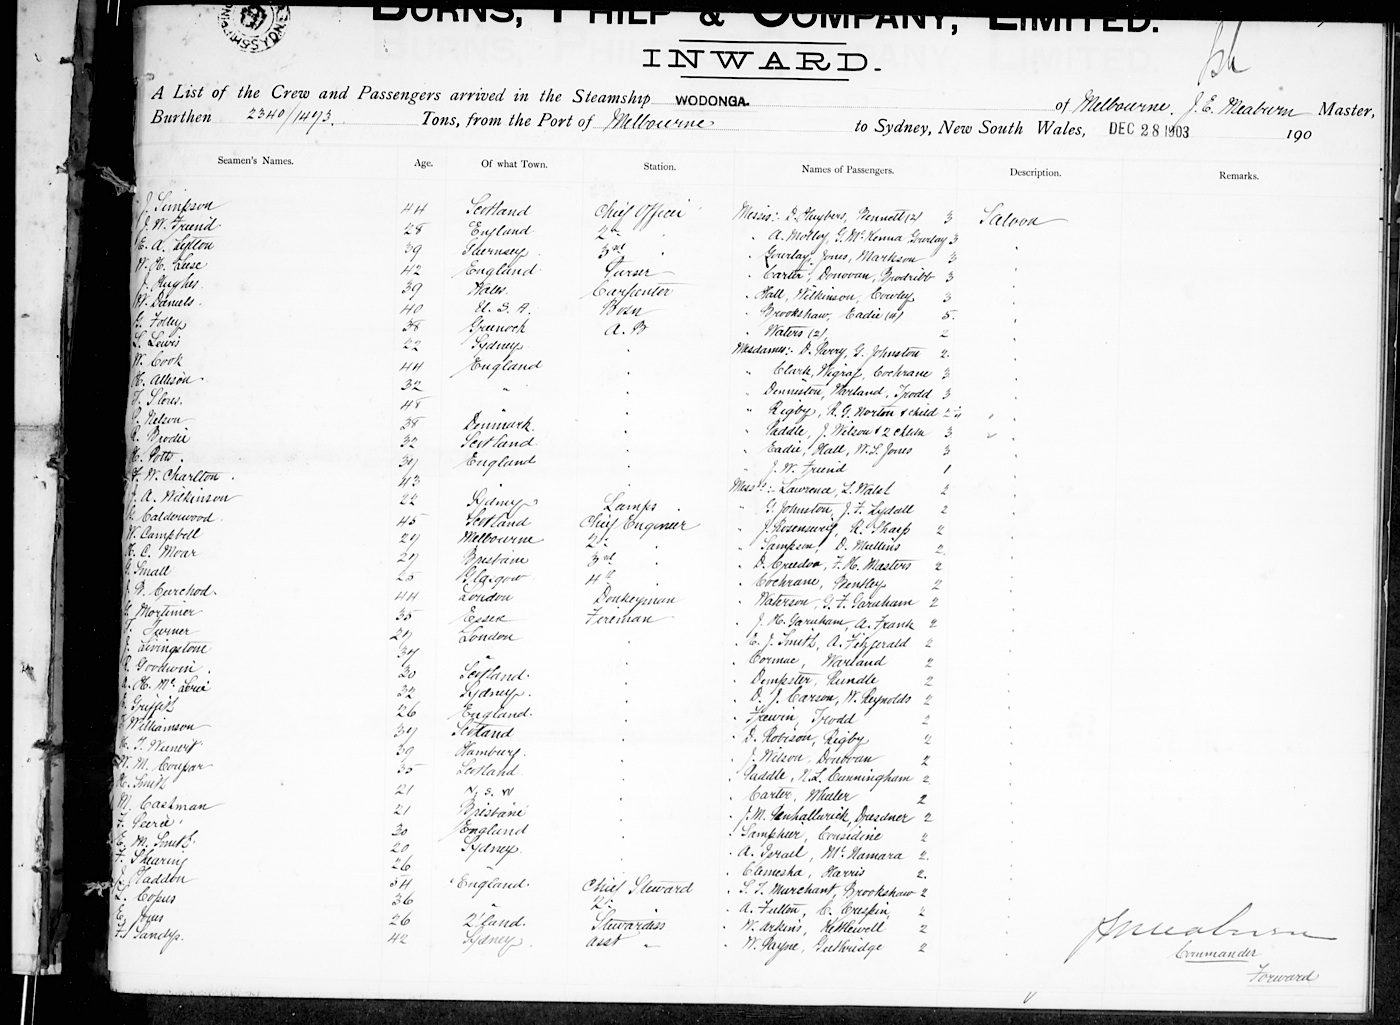 BURNS, PHILP & COMPANY, LIMITED.
INWARD.
A List of the Crew and Passengers arrived in the Steamship WODONGA. of Melbourne. J. E. Meaburn Master,
Burthen 2340/1473. Tons, from the Port of Melbourne to Sydney, New South Wales, DEC 28 1903 190
Seamen's Names. Age. Of what Town. Station. Names of Passengers. Description. Remarks.
J. Simpson 44 Scotland Chief Officer Messrs:- D. Bennett (2) 3 Saloon
J. W. Friend 28 England 2nd " A. Molloy, G. McKenna Gourlay 3
E. A. 39 Guernsey 3rd " Gourlay, Jones, Markson 3
W. H. 42 England Purser " Carter, Donovan, Brodribb 3
J. Hughes 39 Wales Carpenter " Hall, Wilkinson, Cowley 3
W. Daniels 40 U. S. A. Bosn " Brookshaw, Eadie (4) 5
G. Folley 38 Greenock A. B " Waters (2) 2
L. Lewis 22 Sydney Mesdames:- D. Perry, G. Johnston 2
W. Cook 44 England " Clark, Cochrane 3
H. Allison 32 " " Denniston, Warland, Trodd 3
F. 48 " " Rigby, R. G. Norton & child
P. Nelson 38 Denmark " Saddle, J. Wilson & 2 chldn 3
R. Brodie 32 Scotland " Eadie, Hall, W. L. Jones 3
H. Potts 34 England " J. W. Friend 1
F. W. Charlton 43 " Misses:- Lawrence, L. Walsh 2
J. A. Wilkinson 22 Sydney Lamps " G. Johnston, J. F. Lydall 2
A. Calderwood 45 Scotland Chief Engineer " J. Rosensweig, R. Sharp 2
W. Campbell 29 Melbourne 2nd " Sampson, D. Mullins 2
H. C. Moar 29 Brisbane 3rd " D. Creedon, F. H. Masters 2
G. Small 25 Glasgow 4th " Cochrane, Bensley 2
J. G. 44 London Donkeyman " Waterson, G. F. Garnham 2
G. Mortimer 35 Essex Fireman " J. H. Garnham, A. Frank 2
T. Turner 29 London " E. J. Smith, A. Fitzgerald 2
J. Livingstone 34 " " Cormac, Warland 2
R. Goodwin 30 Scotland " Dempster, Rundle 2
A. H. Mc 32 Sydney " D. J. Carson, W. Reynolds 2
E. Griffith 26 England " Frewin, Trodd 2
Williamson 34 Scotland " D. Robison, Rigby 2
H. F. 39 Hamburg " J. Wilson, Donovan 2
W. M. Coupar 35 Scotland " Saddle, N. L. Cunningham 2
H. Smith 21 N. S. W " Carter, Wheeler 2
M. Cashman 21 Brisbane " J. M. Penhallurick, Dresdner 2
F. 30 England " Sampher, Considine 2
E. M. Smith 20 Sydney " A. Israel, McNamara 2
F. Shearing 26 " " Clemesha, Harris 2
J. Haddon 54 England Chief Steward " S. T. Murchant, Brookshaw 2
L. Copus 36 " 2nd " A. Fulton, C. Crespin 2
E. Jones 26 Q'land Stewardess " W. Arkins, Kettlewell 2
F. Sandys 42 Sydney asst " " W. Payne, Guthridge 2
J E Meaburn
Commander
Forward